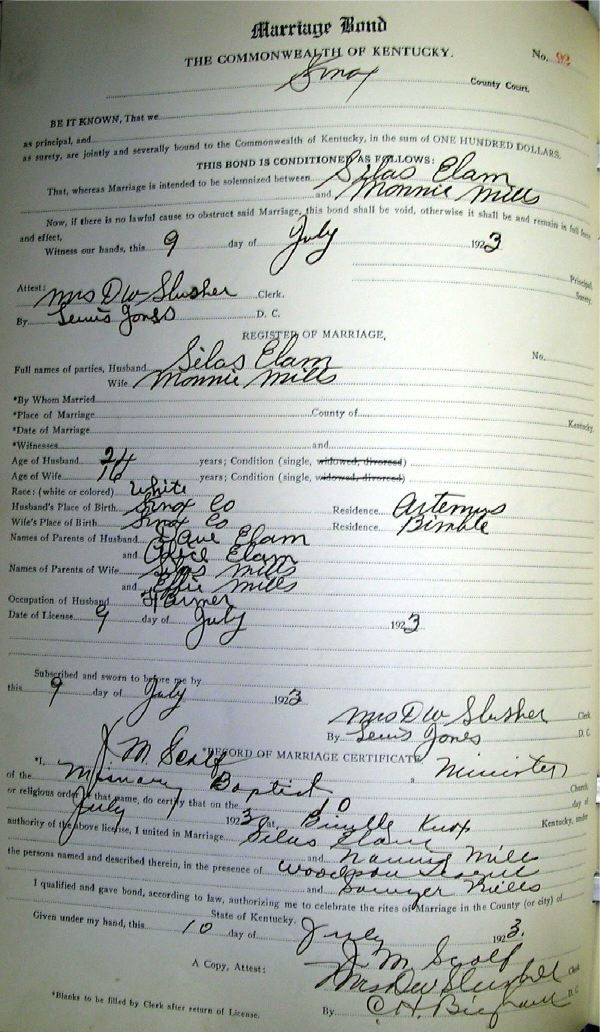 Marriage Bond
THE COMMONWEALTH OF KENTUCKY. No. 92
Knox County Court.
BE IT KNOWN, That we
as principal, and
as surety, are jointly and severally bound to the Commonwealth of Kentucky, in the sum of ONE HUNDRED DOLLARS,
THIS BOND IS CONDITIONED AS FOLLOWS:
That, whereas Marriage is intended to be solemnized between Silas Elam
and Monnie Mills
Now, if there is no lawful cause to obstruct said Marriage, this bond shall be void, otherwise it shall be and remain in full force
and effect,
Witness our hands, this 9 day of July 1923
Principal
Surety.
Attest: Mrs D W Slusher Clerk.
By Lewis Jones D. C.
REGISTER OF MARRIAGE,
Full names of parties, Husband Silas Elam No.
Wife Monnie Mills
*By Whom Married
*Place of Marriage County of Kentucky.
*Date of Marriage
*Witnesses and
Age of Husband 24 years; Condition (single, widowed, divorced)
Age of Wife 16 years; Condition (single, widowed, divorced)
Race: (white or colored) White
Husband's Place of Birth Knox Co Residence Artemus
Wife's Place of Birth Knox Co Residence Bimble
Names of Parents of Husband Elam
and Elam
Names of Parents of Wife Silas Mills
and Effie Mills
Occupation of Husband Farmer
Date of License 9 day of July 1923
Subscribed and sworn to before me by
this 9 day of July 1923
Mrs D W Slusher Clerk
By Lewis Jones D. C.
*RECORD OF MARRIAGE CERTIFICATE
*I, J M Scalf a Minister
of the Baptist Church,
or religious order of that name, do certify that on the 10 day of
July 1923 at Bimble Knox Kentucky, under
authority of the above license, I united in Marriage Silas Elam
and Mills
the persons named and described therein, in the presence of Woodson
and Sawyer Mills
I qualified and gave bond, according to law, authorizing me to celebrate the rites of Marriage in the County (or city) of
State of Kentucky.
Given under my hand, this 10 day of July 1923.
J. M. Scalf
A Copy, Attest: Mrs D W Slusher Clerk
*Blanks to be filled by Clerk after return of License. By D. C.